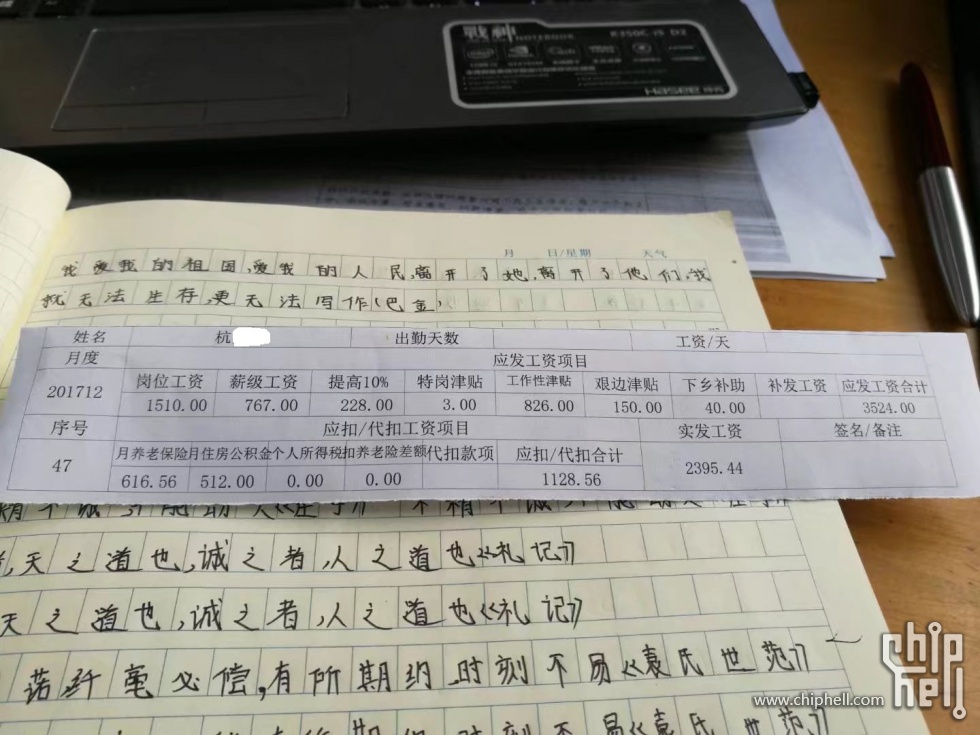 戰神 NOTEBOOK K350C-i5 D2
Hasee 神舟
月 日/星期 天气
我爱我的祖国,爱我的人民,离开了她,离开了他们,我
就无法生存,更无法写作(巴金)
姓名 杭 出勤天数 工资/天
月度 应发工资项目
201712 岗位工资 薪级工资 提高10% 特岗津贴 工作性津贴 艰边津贴 下乡补助 补发工资 应发工资合计
1510.00 767.00 228.00 3.00 826.00 150.00 40.00 3524.00
序号 应扣/代扣工资项目 实发工资 签名/备注
47 月养老保险 月住房公积金 个人所得税 扣养老险差额 代扣款项 应扣/代扣合计
616.56 512.00 0.00 0.00 1128.56 2395.44
,天之道也,诚之者,人之道也《礼记》
天之道也,诚之者,人之道也《礼记》
诺纤毫必偿,有所期约时刻不易《袁氏世范》
时刻不易《袁氏世范》
chip hell
www.chiphell.com